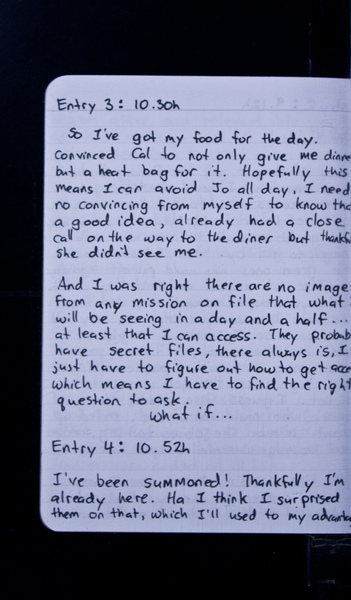 Entry 3: 10.30h
So I've got my food for the day.
Convinced Cal to not only give me dinne
but a heat bag for it. Hopefully this
means I can avoid Jo all day, I need
no convincing from myself to know tha
a good idea, already had a close
call on the way to the diner but thankf
she didn't see me.
And I was right there are no image
from any mission on file that what
will be seeing in a day and a half...
at least that I can access. They probab
have secret files, there always is, I
just have to figure out how to get acce
which means I have to find the right
question to ask.
What if...
Entry 4: 10.52h
I've been summoned! Thankfully I'm
already here. Ha I think I surprised
them on that, which I'll used to my advanta